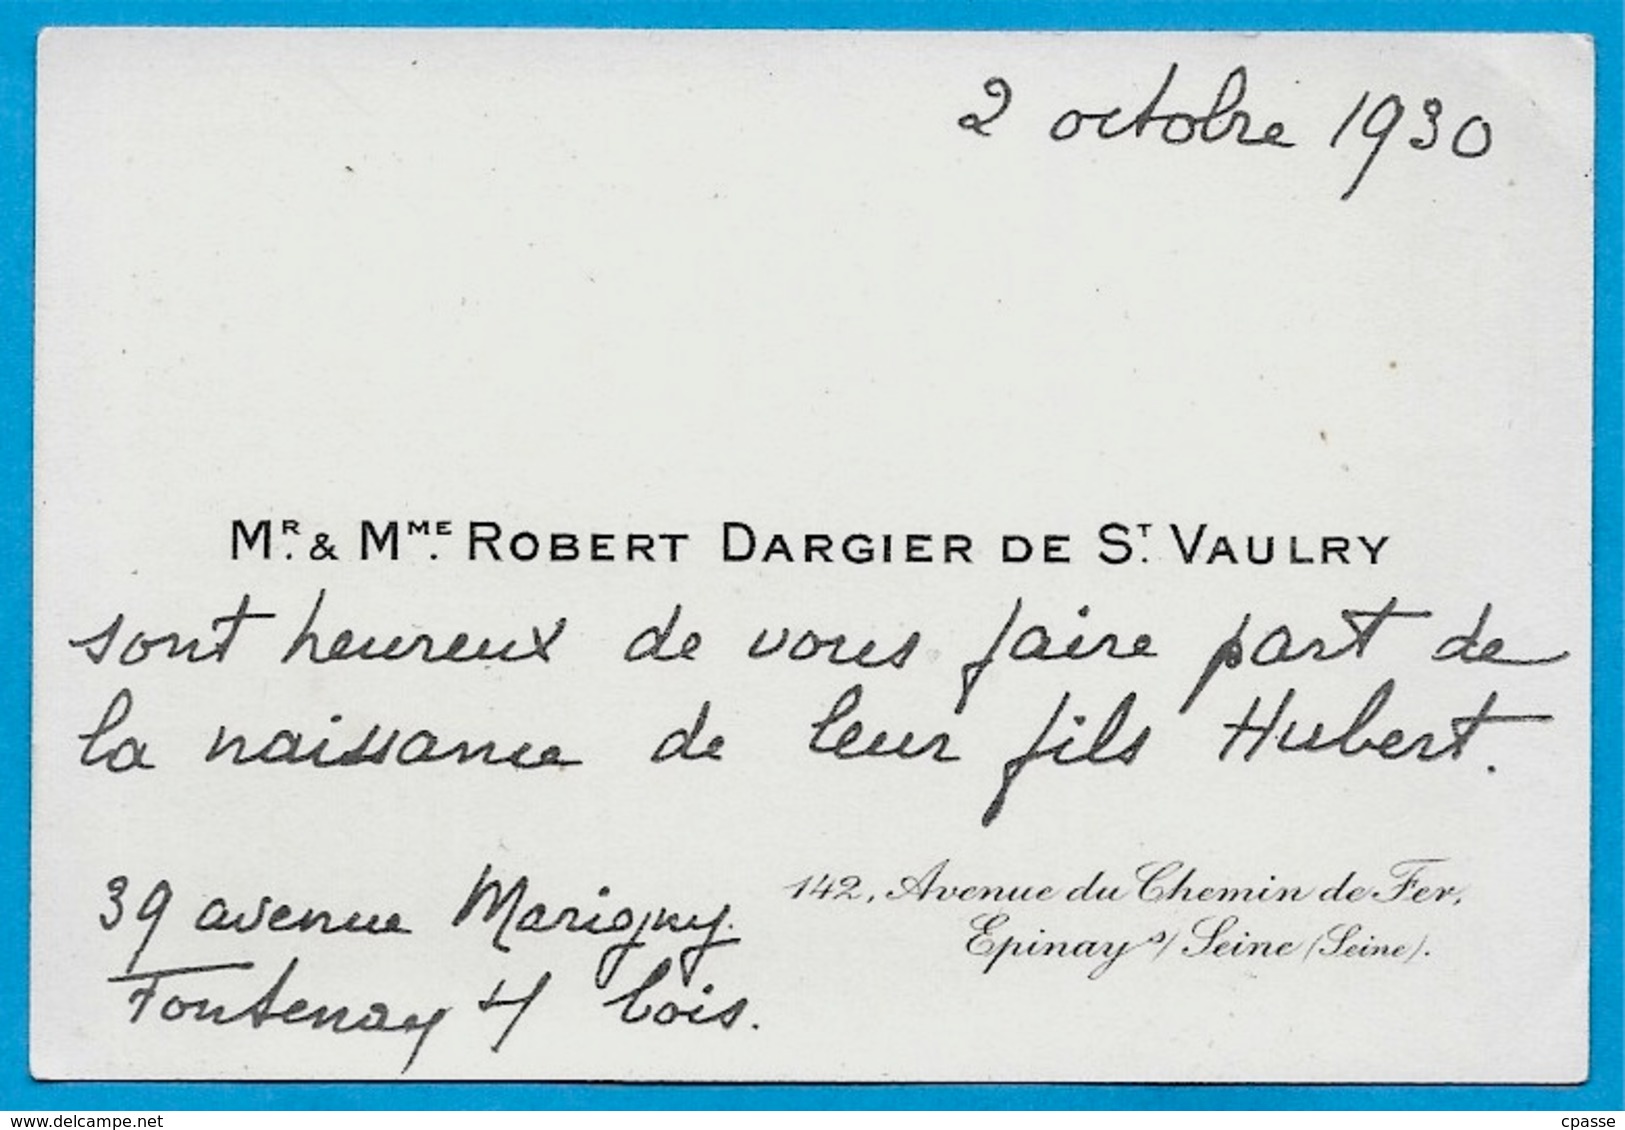 2 octobre 1930
MR. & MME. ROBERT DARGIER DE ST. VAULRY
sont heureux de vous faire part de
la naissance de leur fils Hubert.
39 avenue Marigny.
Fontenay s/ bois.
142, Avenue du Chemin de Fer,
Epinay s/ Seine (Seine).
www.delcampe.net
cpasse